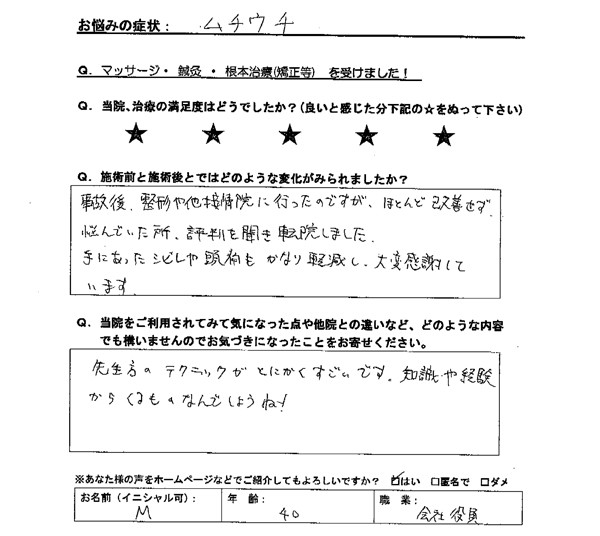 お悩みの症状： ムチウチ
Q．マッサージ・ 鍼灸 ・ 根本治療(矯正等) を受けました！
Q．当院、治療の満足度はどうでしたか？（良いと感じた分下記の☆をぬって下さい）
★ ★ ★ ★ ★
Q．施術前と施術後とではどのような変化がみられましたか？
事故後、整形や他接骨院に行ったのですが、ほとんど改善せず
悩んでいた所、評判を聞き転院しました。
手にあったシビレや頭痛もかなり軽減し、大変感謝して
います。
Q．当院をご利用されてみて気になった点や他院との違いなど、どのような内容
でも構いませんのでお気づきになったことをお寄せください。
先生方のテクニックがとにかくすごいです。知識や経験
からくるものなんでしょうね！
※あなた様の声をホームページなどでご紹介してもよろしいですか？ ☑はい □匿名で □ダメ
お名前（イニシャル可）： 年 齢： 職 業：
M 40 会社役員